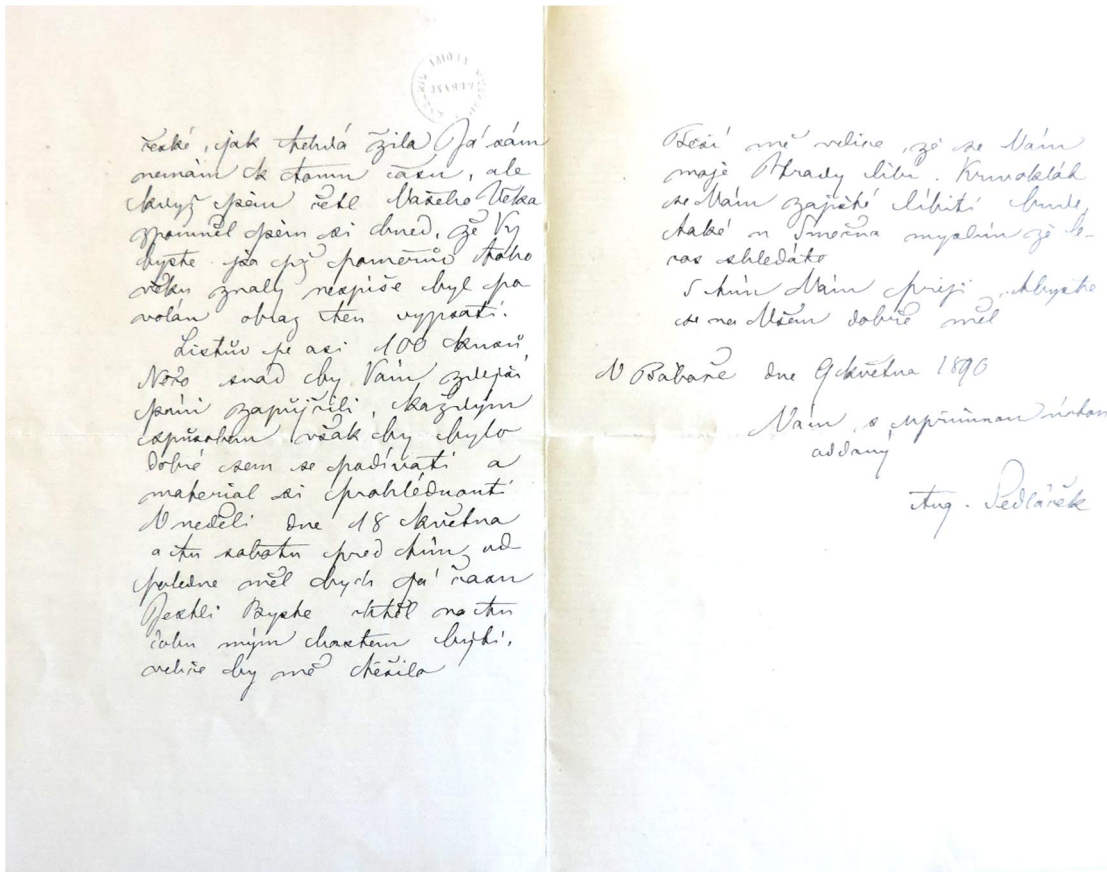 české, jak tehdá žila Já sám
nemám k tomu času, ale
když jsem četl Vašeho Věka
vpomněl jsem si hned, že Vy
byste jso jsa poměrův toho
věku znalý nejspíše byl po
volán obraz ten vypsati.
Listův je asi 100 kusů,
Něco snad by Vám zdejší
páni zapůjčili, každým
spůsobem však by bylo
dobré sem se podívati a
material si prohlédnouti
V neděli dne 18 května
a tu sobotu před tím od
poledne měl bych já času
Jestli Byste chtěl na tu
dobu mým hostem býti,
velice by mě těšilo
Těší mě velice, že se Vám
moje Hrady líbí. Křivoklát
se Vám zajisté líbiti bude,
také u Smečna myslím že le-
cos shledáte
S tím Vám přeji, abyste
se na Všem dobře měl
V Táboře dne 9 května 1890
Vám s upřímnou úctou
oddaný
Aug. Sedláček